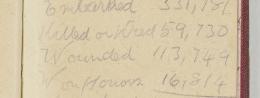 Embarked 331,781
Killed or Died 59,730
Wounded 113,749
Won Honours 16,814